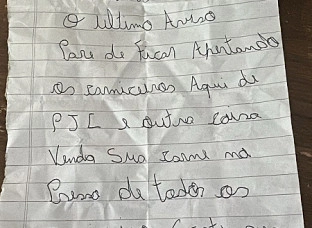 O ultimo Aviso
Pare de Ficar Apertando
os carniceiros Aqui de
PJL e outra coisa
Venda Sua Carne no
Preso de todos os